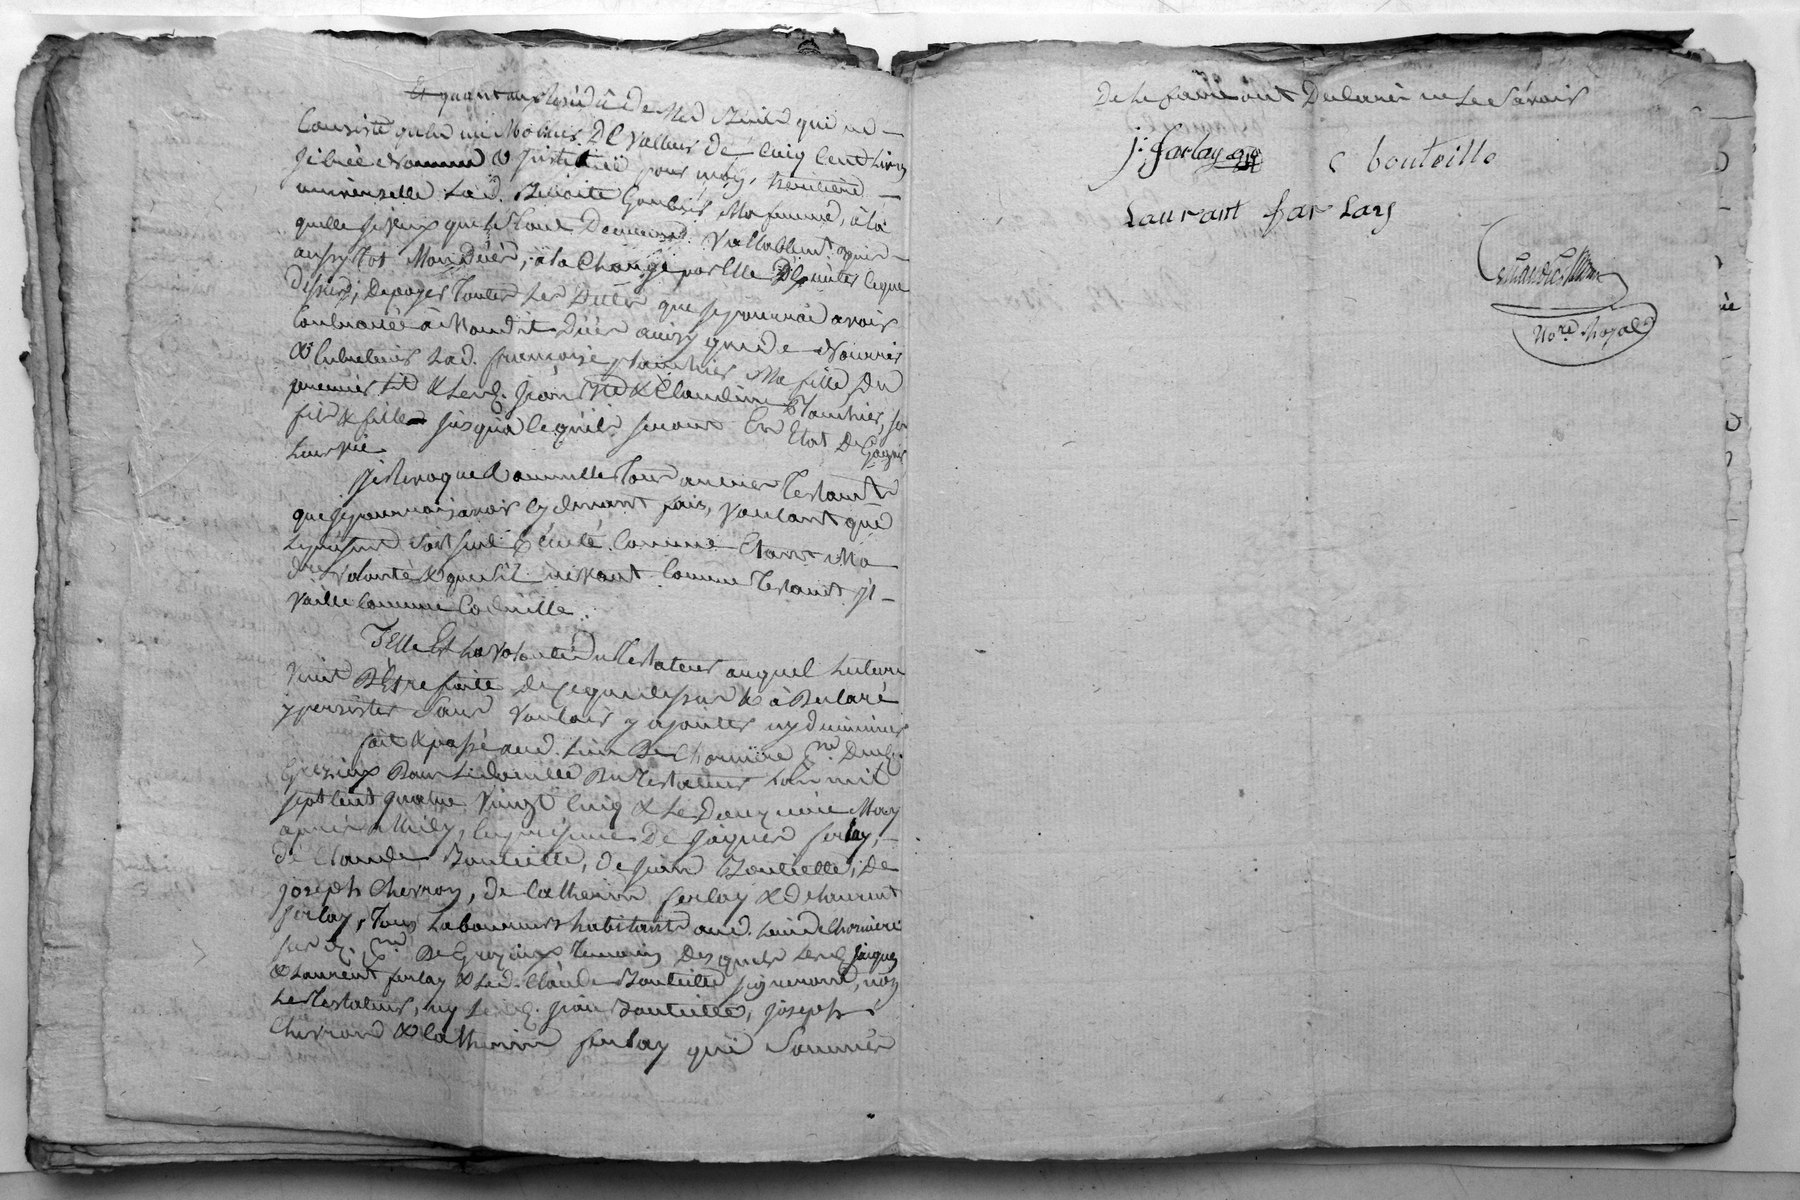 Et quant au Residû de Med Biens qui ne
Consiste qu'en mes Mobliers De Valleur De Cinq Cent Livres
Je Crée Nomme & Institue pour mon heritiere
universelle Lad. Benoite Ma femme, à la
quelle Je veux que le Tout Demeure Vallablement acquis
aussy tot Mon Décès, à la Charge par Elle D'acquitter Ce que
Dessus, De payer Toutes Les Dettes que Je pourrai avoir
Contractée à Mondit Décès ainsy que de Nourrir
& Entretenir Lad. françoise Ma fille Du
premier Lit & Lesd. Jean & Claudine
fils & fille Jusqu'à Ce qu'ils seront En Etat De Gagner
Leur vie
Je Revoque & annulle Tous autres Testamts
que Je pourrois avoir Cy devant fais, Voulant que
Le présent soit seul Exécuté Comme Etant Ma
dre Volonté & que s'il ne vaut Comme Testamt Il
Vaille Comme Codicille.
Telle Est La Volonté du Testateur auquel Lecture
Vient D'Etre faite De Ce que dessus & à Declaré
y persister Sans Vouloir y ajouter ny diminuer
fait & passé aud. Lieu De Chorniere De
Grezieux Dans Le domicille Du Testateur L'an mil
sept Cent quatre Vingt Cinq & Le May
après Midy, En presence De Jaques ferlay,
de Claude Bouteille, de Jean Bouteille, De
Joseph Cherron, de Catherine ferlay & de Laurent
ferlay, Tous Laboureurs habitants aud. Lieu de Chorniere
De Grezieux Temoins Des quels Lesd. Jaques
& Laurent ferlay & Led. Claude Bouteille signeront, non
Le Testateur, ny Lesd. Jean Bouteille, Joseph
Cherrond & Catherine ferlay qui Sommés
De Le faire ont Declaré ne Le Sávoir
J: farlay
c bouteille
Laurant far Lay
Nore Royal